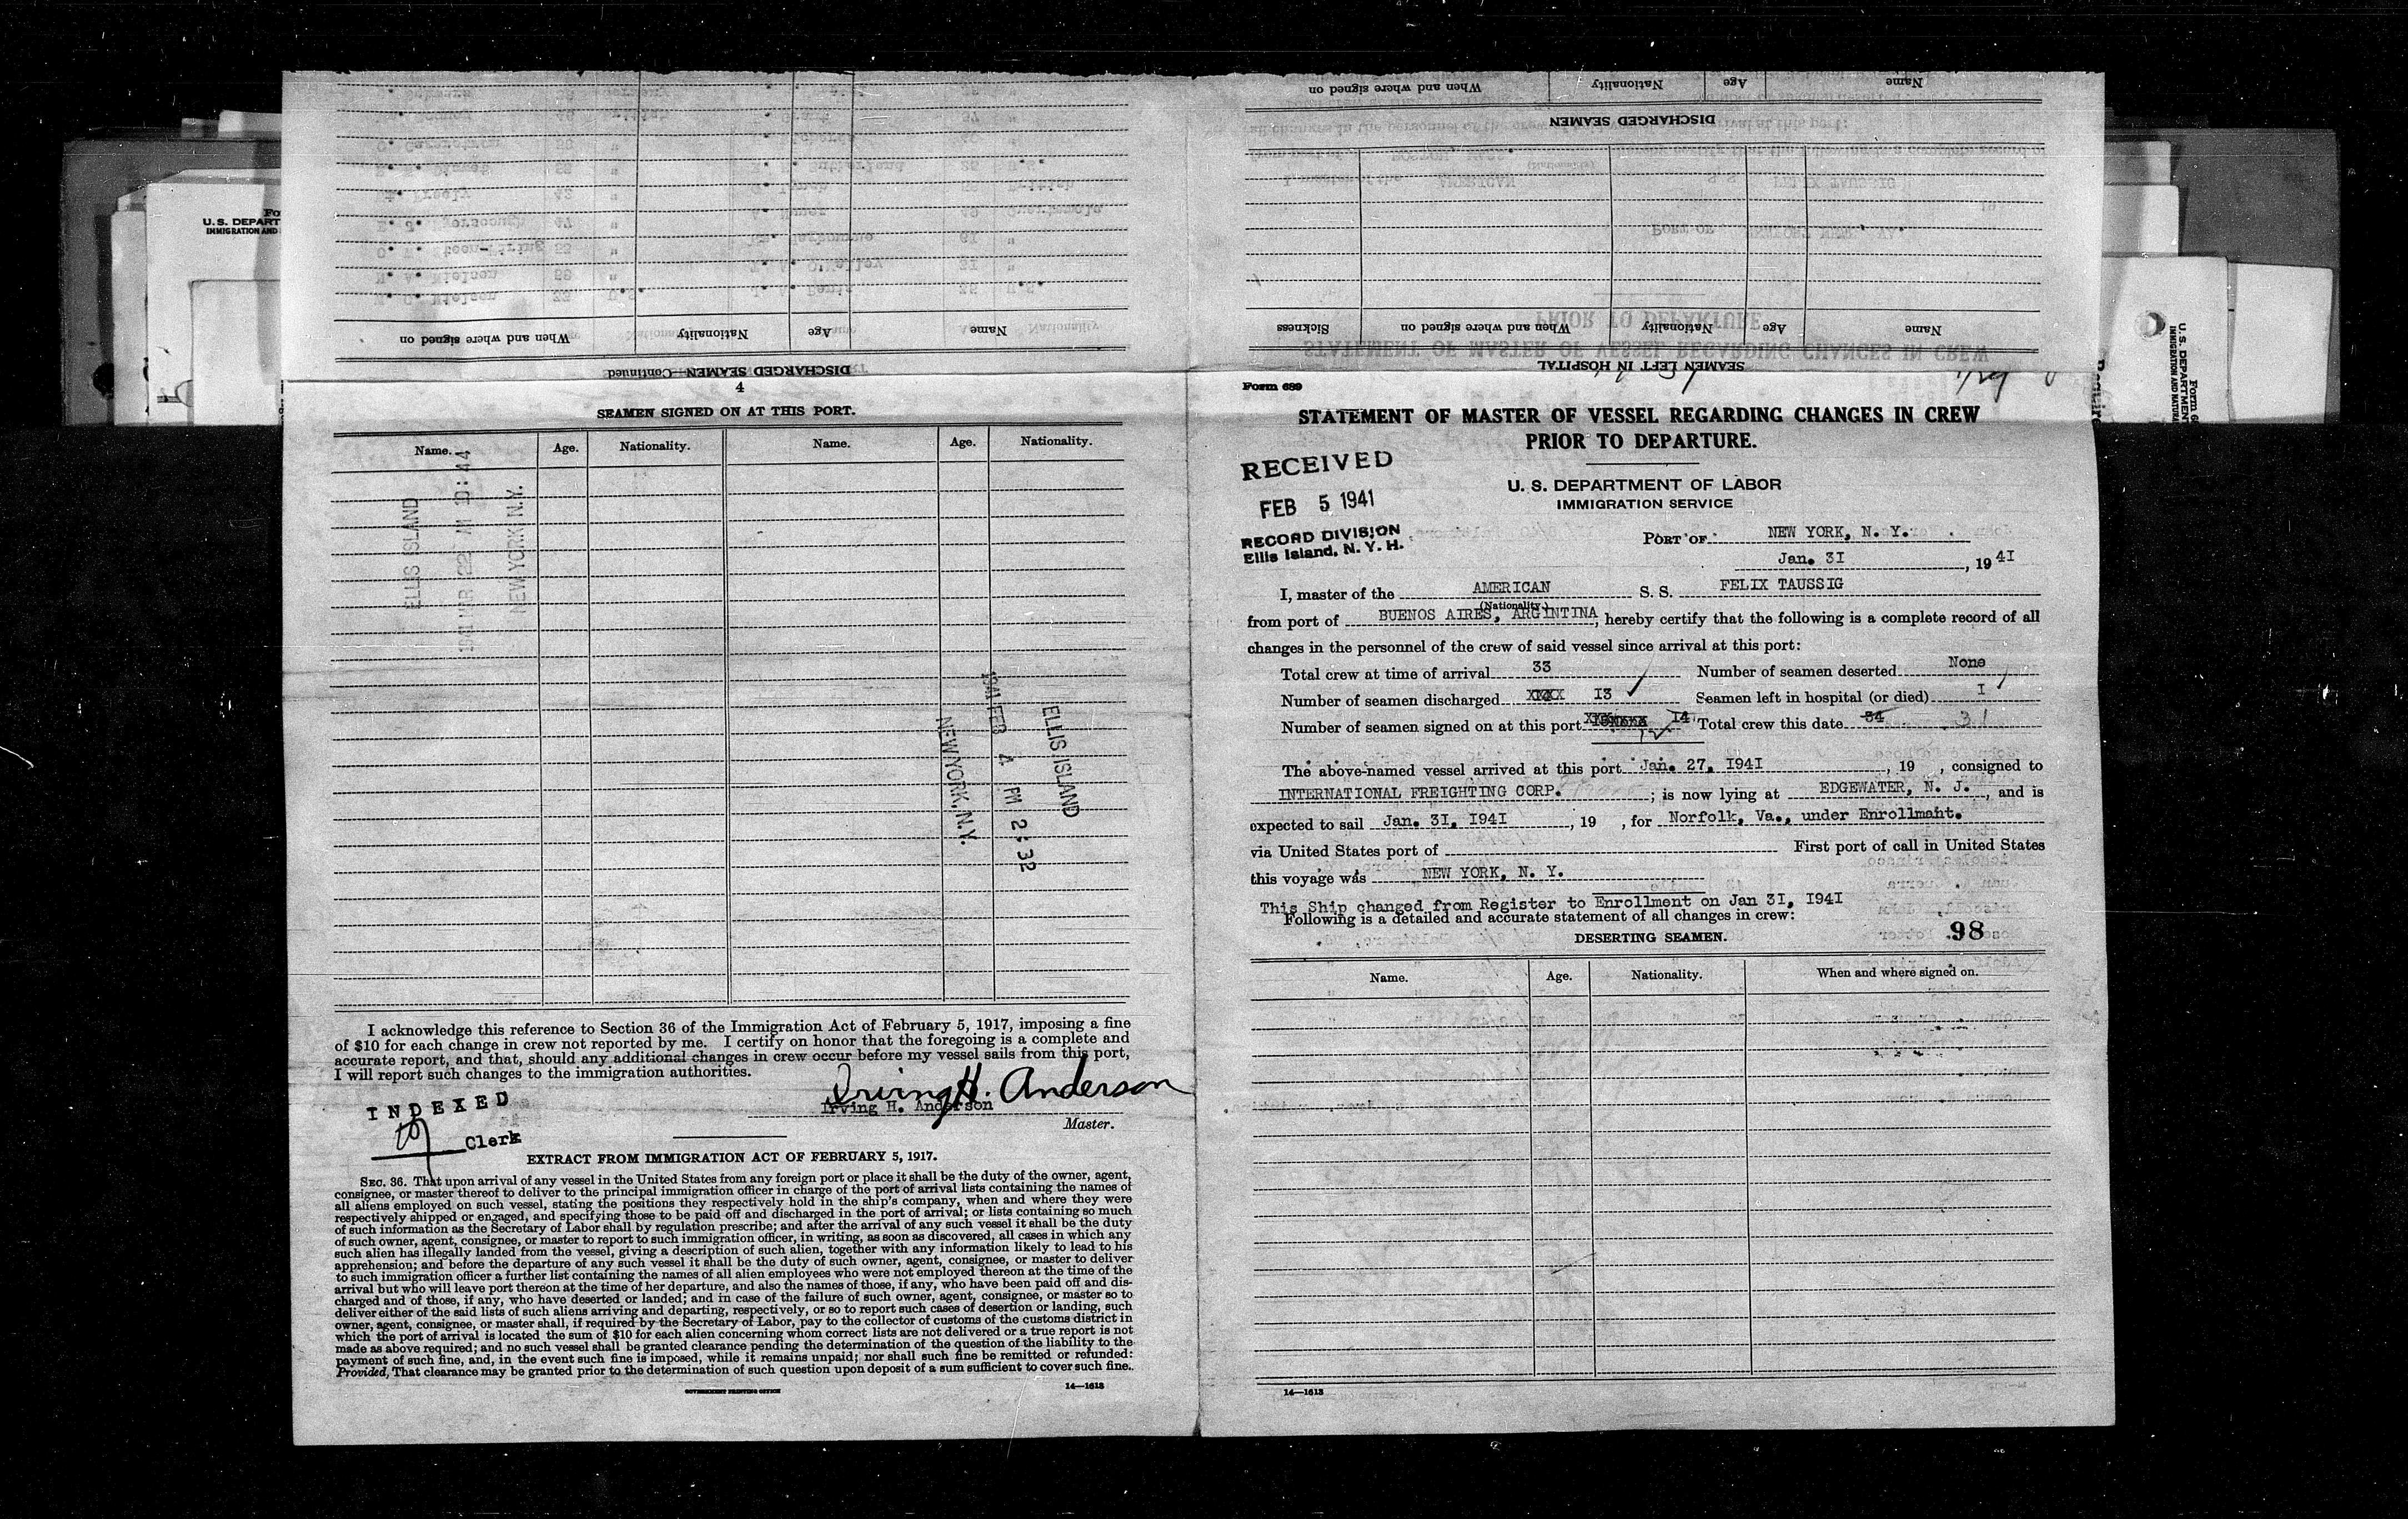 4
SEAMEN SIGNED ON AT THIS PORT.
Name. Age. Nationality. Name. Age. Nationality.
ELLIS ISLAND
22 AM 10:44
NEW YORK N.Y.
ELLIS ISLAND
1941 FEB 4 PM 2:32
NEW YORK, N.Y.
I acknowledge this reference to Section 36 of the Immigration Act of February 5, 1917, imposing a fine
of $10 for each change in crew not reported by me. I certify on honor that the foregoing is a complete and
accurate report, and that, should any additional changes in crew occur before my vessel sails from this port,
I will report such changes to the immigration authorities.
Irving H. Anderson
Irving H. Anderson
Master.
INDEXED
Clerk
EXTRACT FROM IMMIGRATION ACT OF FEBRUARY 5, 1917.
SEC. 36. That upon arrival of any vessel in the United States from any foreign port or place it shall be the duty of the owner, agent,
consignee, or master thereof to deliver to the principal immigration officer in charge of the port of arrival lists containing the names of
all aliens employed on such vessel, stating the positions they respectively hold in the ship's company, when and where they were
respectively shipped or engaged, and specifying those to be paid off and discharged in the port of arrival; or lists containing so much
of such information as the Secretary of Labor shall by regulation prescribe; and after the arrival of any such vessel it shall be the duty
of such owner, agent, consignee, or master to report to such immigration officer, in writing, as soon as discovered, all cases in which any
such alien has illegally landed from the vessel, giving a description of such alien, together with any information likely to lead to his
apprehension; and before the departure of any such vessel it shall be the duty of such owner, agent, consignee, or master to deliver
to such immigration officer a further list containing the names of all alien employees who were not employed thereon at the time of the
arrival but who will leave port thereon at the time of her departure, and also the names of those, if any, who have been paid off and dis-
charged and of those, if any, who have deserted or landed; and in case of the failure of such owner, agent, consignee, or master so to
deliver either of the said lists of such aliens arriving and departing, respectively, or so to report such cases of desertion or landing, such
owner, agent, consignee, or master shall, if required by the Secretary of Labor, pay to the collector of customs of the customs district in
which the port of arrival is located the sum of $10 for each alien concerning whom correct lists are not delivered or a true report is not
made as above required; and no such vessel shall be granted clearance pending the determination of the question of the liability to the
payment of such fine, and, in the event such fine is imposed, while it remains unpaid; nor shall such fine be remitted or refunded:
Provided, That clearance may be granted prior to the determination of such question upon deposit of a sum sufficient to cover such fine.
GOVERNMENT PRINTING OFFICE
14—1613
DISCHARGED SEAMEN—Continued
Name Age Nationality When and where signed on
SEAMEN LEFT IN HOSPITAL
Name Age Nationality When and where signed on Sickness
DISCHARGED SEAMEN
Name Age Nationality When and where signed on
Form 689
STATEMENT OF MASTER OF VESSEL REGARDING CHANGES IN CREW
PRIOR TO DEPARTURE.
RECEIVED
FEB 5 1941
RECORD DIVISION
Ellis Island, N. Y. H.
U. S. DEPARTMENT OF LABOR
IMMIGRATION SERVICE
PORT OF NEW YORK, N. Y.
Jan. 31, 1941
I, master of the AMERICAN S. S. FELIX TAUSSIG
(Nationality)
from port of BUENOS AIRES, ARGINTINA, hereby certify that the following is a complete record of all
changes in the personnel of the crew of said vessel since arrival at this port:
Total crew at time of arrival 33 Number of seamen deserted None
Number of seamen discharged XXXX 13 Seamen left in hospital (or died) I
Number of seamen signed on at this port 14 12 Total crew this date 34 31
The above-named vessel arrived at this port Jan. 27, 1941, 19 , consigned to
INTERNATIONAL FREIGHTING CORP. ; is now lying at EDGEWATER, N. J., and is
expected to sail Jan. 31, 1941, 19 , for Norfolk, Va., under Enrollmant.
via United States port of First port of call in United States
this voyage was NEW YORK, N. Y.
This Ship changed from Register to Enrollment on Jan 31, 1941
Following is a detailed and accurate statement of all changes in crew:
98
DESERTING SEAMEN.
Name. Age. Nationality. When and where signed on.
14—1613